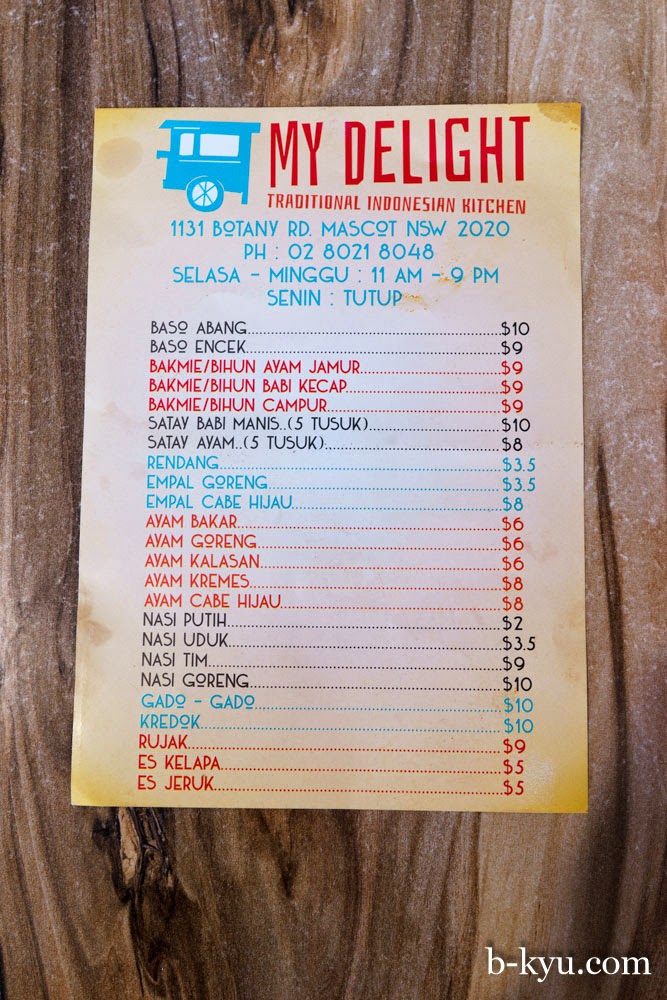 MY DELIGHT
TRADITIONAL INDONESIAN KITCHEN
1131 BOTANY RD. MASCOT NSW 2020
PH : 02 8021 8048
SELASA - MINGGU : 11 AM - 9 PM
SENIN : TUTUP
BASO ABANG....................$10
BASO ENCEK....................$9
BAKMIE/BIHUN AYAM JAMUR....................$9
BAKMIE/BIHUN BABI KECAP....................$9
BAKMIE/BIHUN CAMPUR....................$9
SATAY BABI MANIS..(5 TUSUK)....................$10
SATAY AYAM..(5 TUSUK)....................$8
RENDANG....................$3.5
EMPAL GORENG....................$3.5
EMPAL CABE HIJAU....................$8
AYAM BAKAR....................$6
AYAM GORENG....................$6
AYAM KALASAN....................$6
AYAM KREMES....................$8
AYAM CABE HIJAU....................$8
NASI PUTIH....................$2
NASI UDUK....................$3.5
NASI TIM....................$9
NASI GORENG....................$10
GADO - GADO....................$10
KREDOK....................$10
RUJAK....................$9
ES KELAPA....................$5
ES JERUK....................$5
b-kyu.com